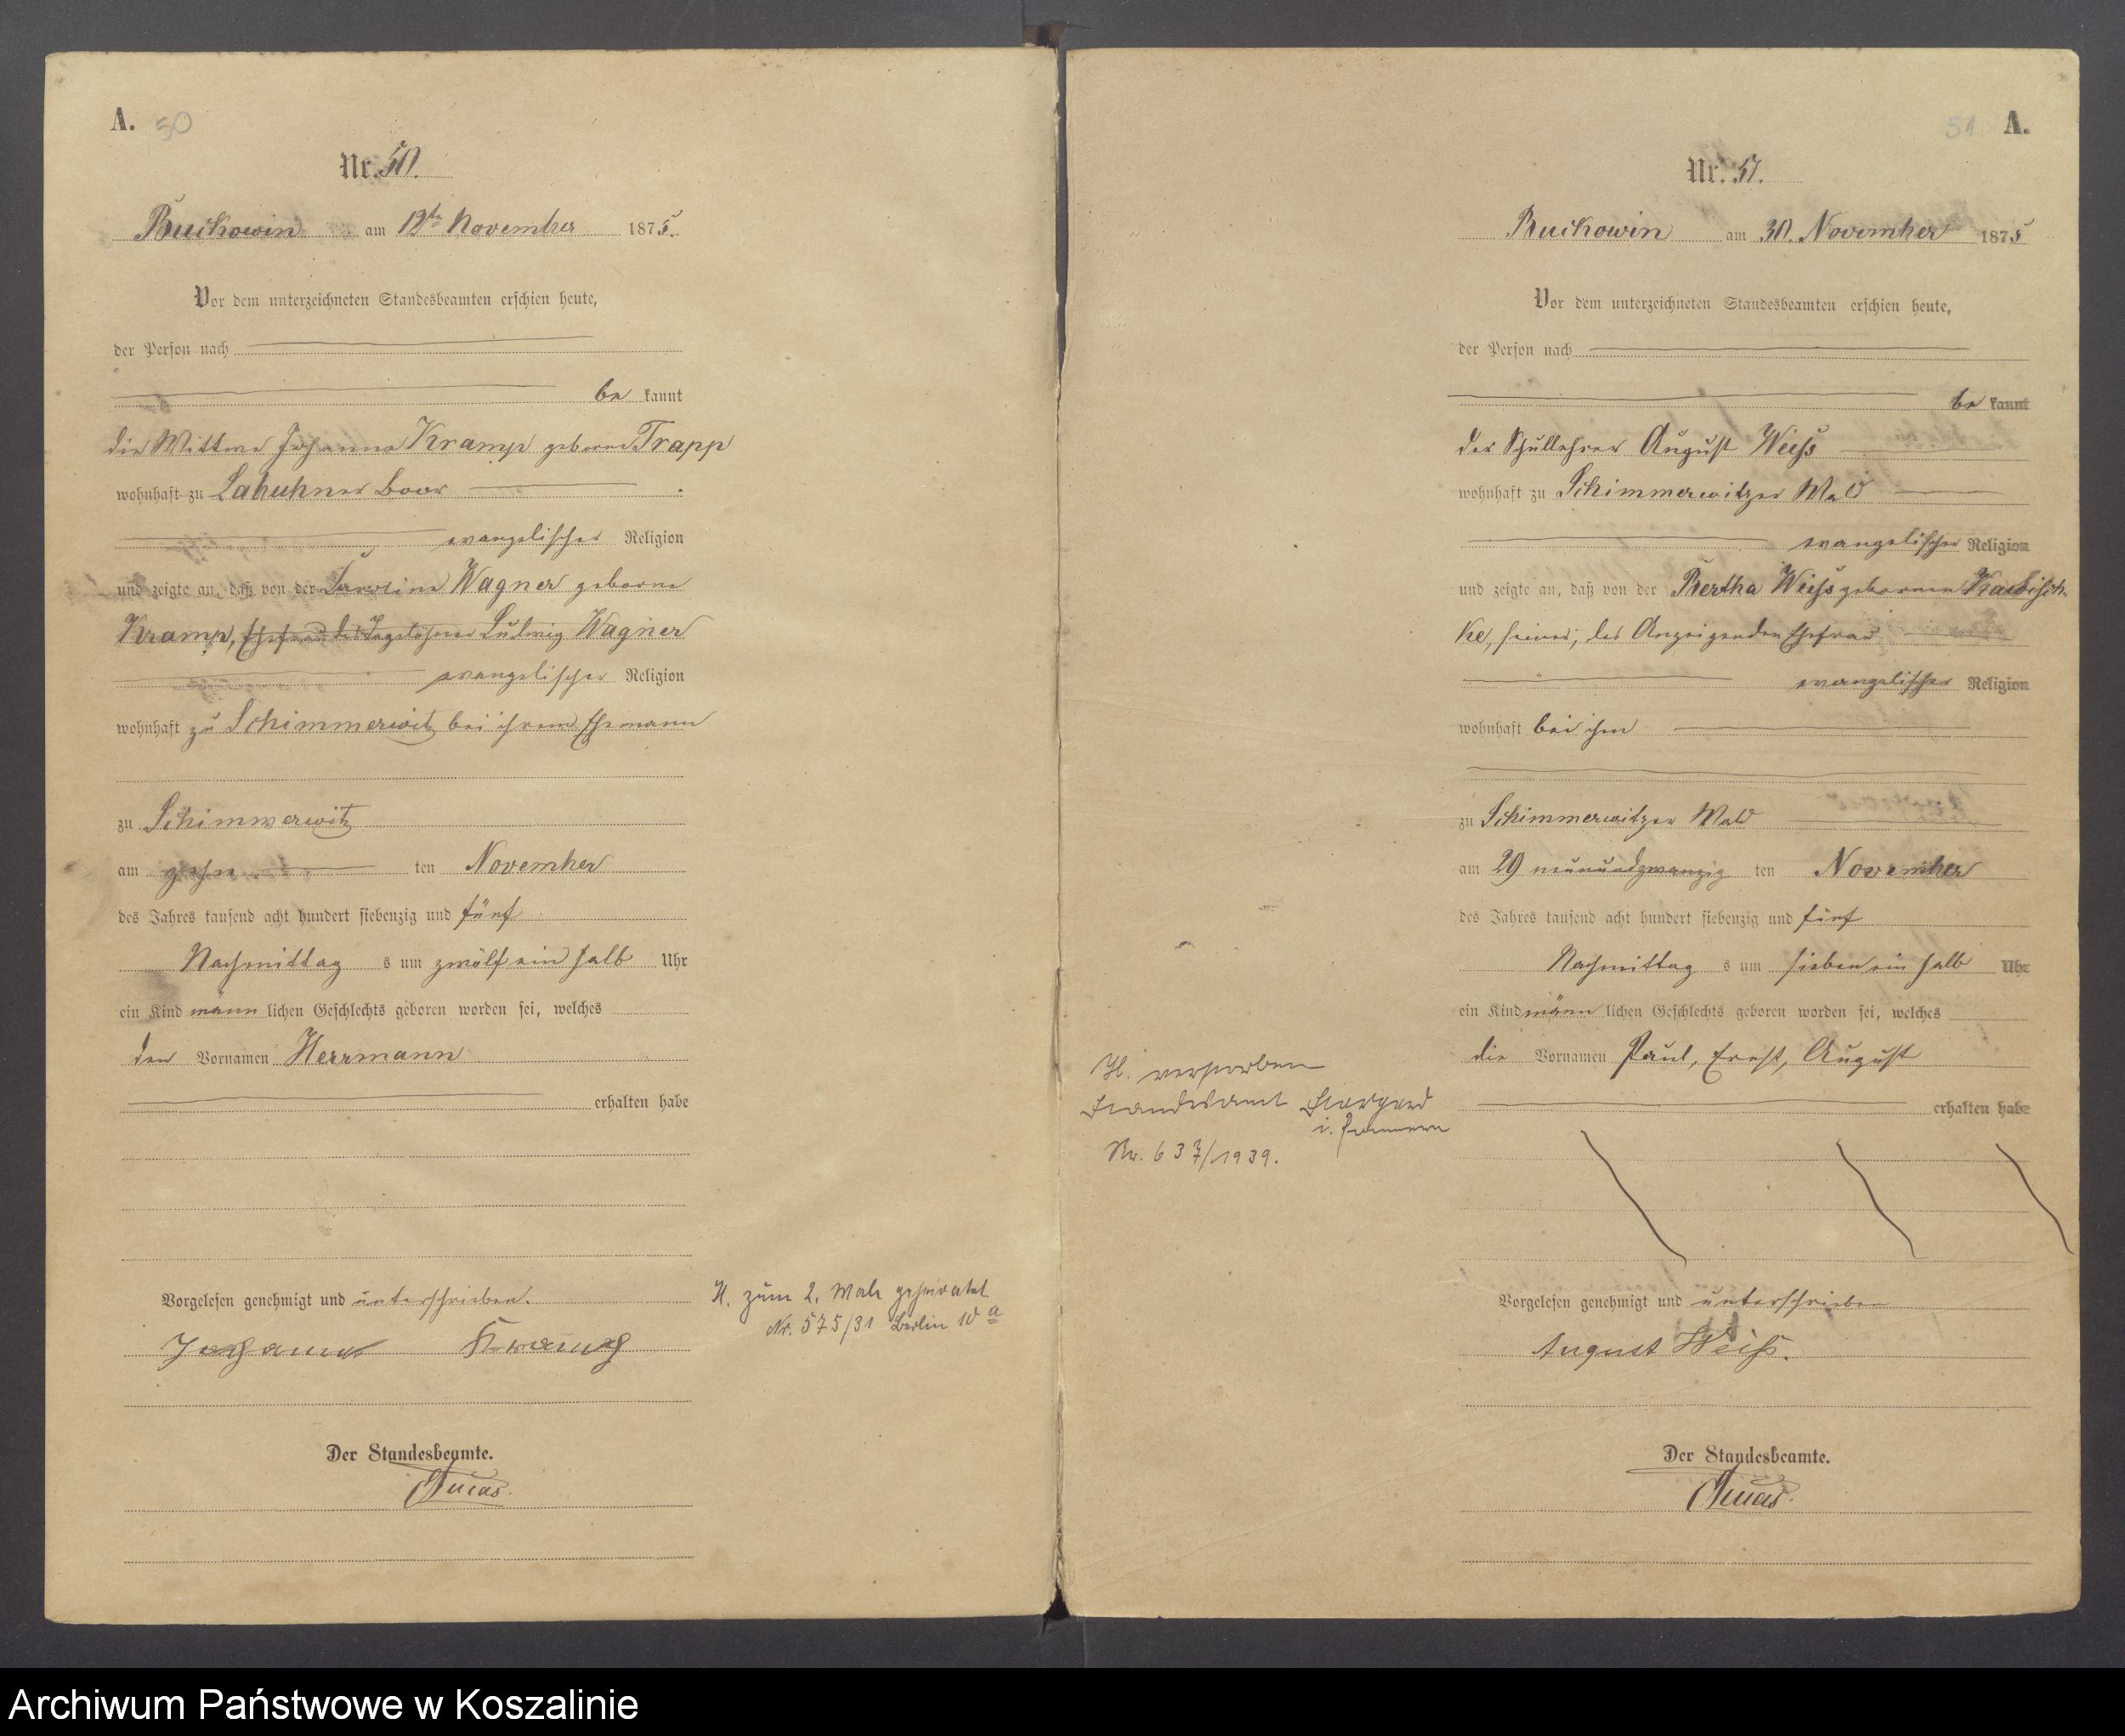 A. 50
Nr. 50.
Buckowin am 12ten November 1875.
Vor dem unterzeichneten Standesbeamten erschien heute,
der Person nach
be kannt
die Wittwe Johanna Kramp geborne Trapp
wohnhaft zu Labuhner Boor
evangelischer Religion
und zeigte an, daß von der Caroline Wagner geborne
Kramp, Ehefrau des Tagelöhner Ludwig Wagner
evangelischer Religion
wohnhaft zu Schimmerwitz bei ihrem Ehemann
zu Schimmerwitz
am zehn ten November
des Jahres tausend acht hundert siebenzig und fünf
Nachmittag s um zwölf ein halb Uhr
ein Kind männ lichen Geschlechts geboren worden sei, welches
den Vornamen Herrmann
erhalten habe
Vorgelesen genehmigt und unterschrieben.
Johanna Kramp
H. zum 2. Male geheiratet
Nr. 575/31 Berlin 10a
Der Standesbeamte.
51 A.
Nr. 51.
Buckowin am 30. November 1875
Vor dem unterzeichneten Standesbeamten erschien heute,
der Person nach
be kannt
der Schullehrer August Weiß
wohnhaft zu Schimmerwitzer Wald
evangelischer Religion
und zeigte an, daß von der Bertha Weiß gebornen
ke, seiner, des Anzeigenden Ehefrau
evangelischer Religion
wohnhaft bei ihm
zu Schimmerwitzer Wald
am 29 neunundzwanzig ten November
des Jahres tausend acht hundert siebenzig und fünf
Nachmittag s um sieben ein halb Uhr
ein Kind männ lichen Geschlechts geboren worden sei, welches
die Vornamen Paul, Ernst, August
erhalten habe
H. verstorben
Standesamt Stargard
i. Pommern
Nr. 637/1939.
Vorgelesen genehmigt und unterschrieben
August Weiß.
Der Standesbeamte.
Archiwum Państwowe w Koszalinie